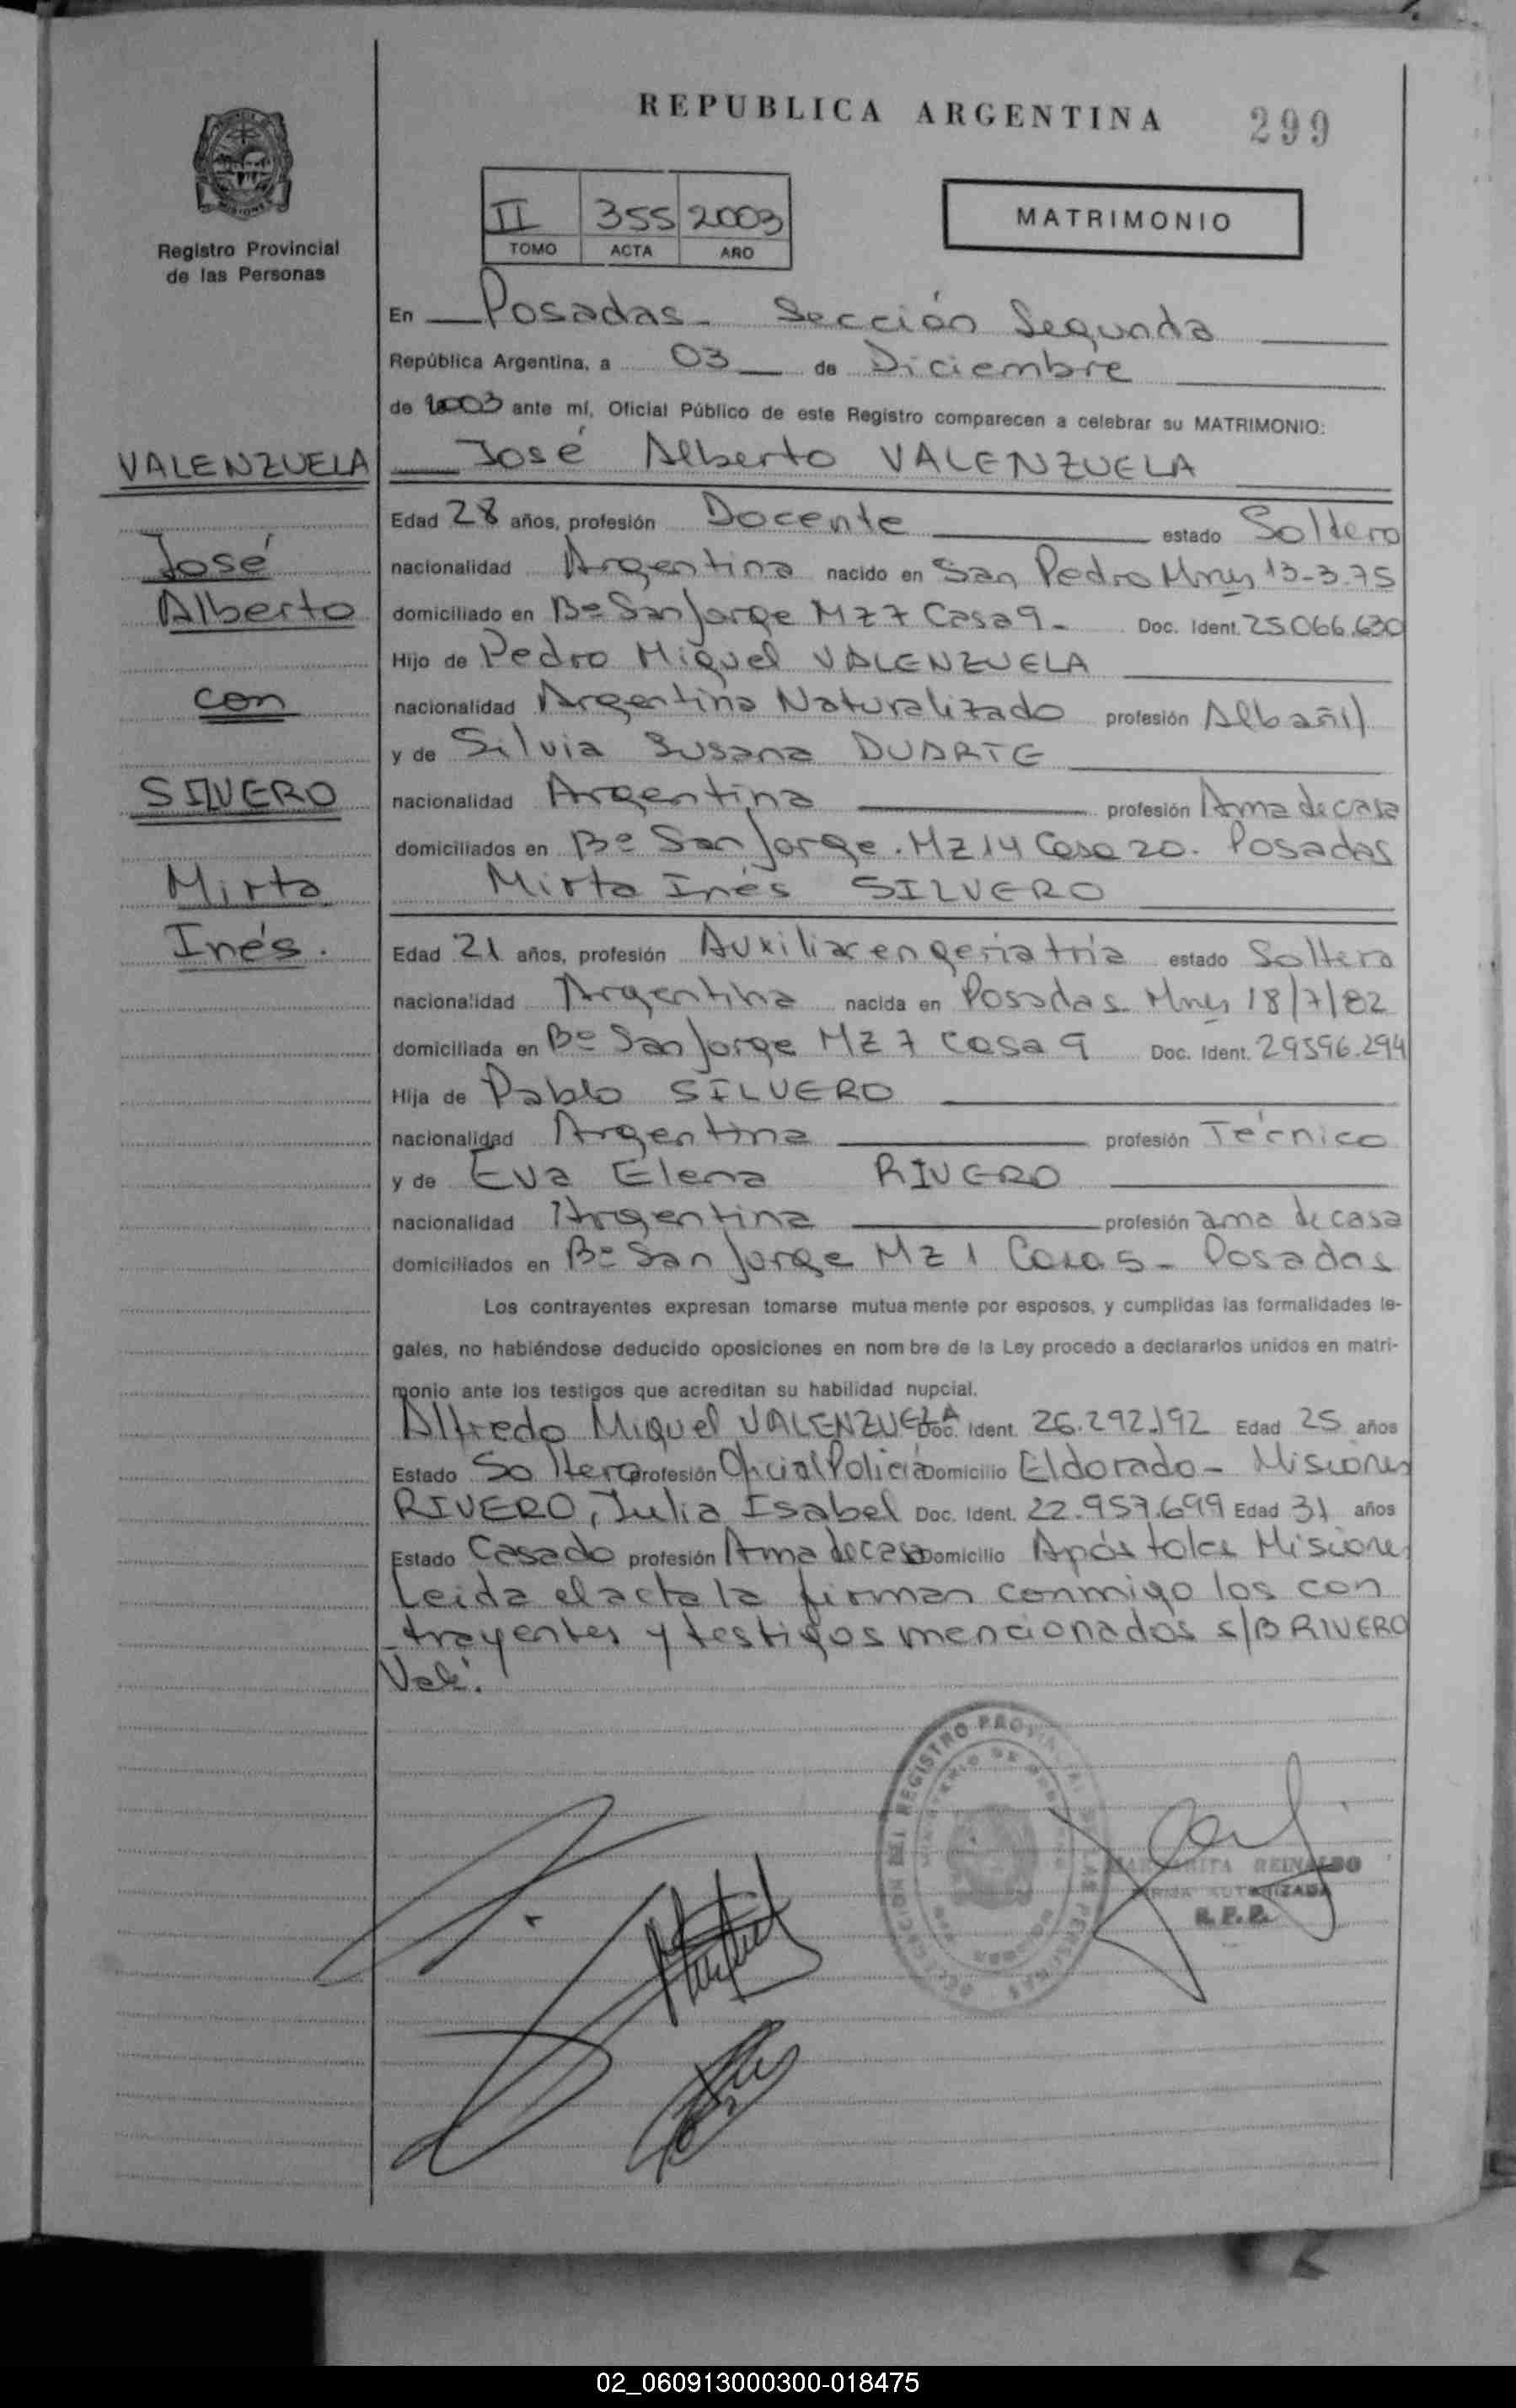 REPUBLICA ARGENTINA 299
II 355 2003
TOMO ACTA AÑO
MATRIMONIO
Registro Provincial
de las Personas
En Posadas - Sección Segunda
República Argentina, a 03 de Diciembre
de 2003 ante mí, Oficial Público de este Registro comparecen a celebrar su MATRIMONIO:
VALENZUELA
José Alberto VALENZUELA
Edad 28 años, profesión Docente estado Soltero
José
nacionalidad Argentina nacido en San Pedro Mnes 13-3-75
Alberto
domiciliado en Bº San Jorge MZ 7 Casa 9- Doc. Ident. 25.066.630
Hijo de Pedro Miguel VALENZUELA
con
nacionalidad Argentina Naturalizado profesión Albañil
y de Silvia Susana DUARTE
SILVERO
nacionalidad Argentina profesión Ama de casa
domiciliados en Bº San Jorge. MZ 14 Casa 20. Posadas
Mirta
Mirta Inés SILVERO
Inés.
Edad 21 años, profesión Auxiliar en geriatría estado Soltera
nacionalidad Argentina nacida en Posadas Mnes 18/7/82
domiciliada en Bº San Jorge MZ 7 Casa 9 Doc. Ident. 29596.294
Hija de Pablo SILVERO
nacionalidad Argentina profesión Técnico
y de Eva Elena RIVERO
nacionalidad Argentina profesión ama de casa
domiciliados en Bº San Jorge MZ 1 Casa 5- Posadas
Los contrayentes expresan tomarse mutua mente por esposos, y cumplidas las formalidades le-
gales, no habiéndose deducido oposiciones en nom bre de la Ley procedo a declararlos unidos en matri-
monio ante los testigos que acreditan su habilidad nupcial.
Alfredo Miguel VALENZUELA Doc. Ident. 26.292.192 Edad 25 años
Estado Soltero profesión Oficial Policía Domicilio Eldorado - Misiones
RIVERO, Julia Isabel Doc. Ident. 22.957.699 Edad 31 años
Estado Casado profesión Ama de casa Domicilio Apóstoles Misiones
Leida el acta la firman conmigo los con
trayentes y testigos mencionados s/B RIVERO
Vale.
MARGARITA REINALDO
FIRMA AUTORIZADA
R. P. P.
02_060913000300-018475